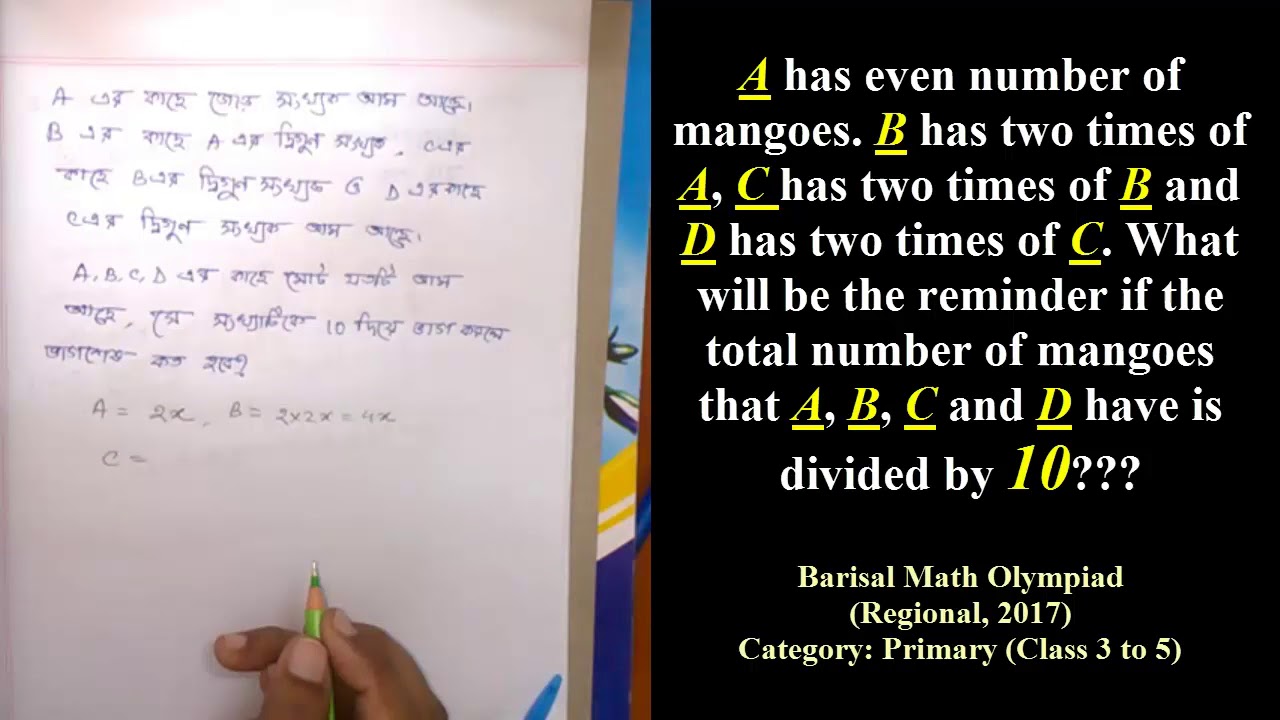 A এর কাছে জোড় সংখ্যক আম আছে।
B এর কাছে A এর দ্বিগুন সংখ্যক, C এর
কাছে B এর দ্বিগুন সংখ্যক ও D এর কাছে
C এর দ্বিগুন সংখ্যক আম আছে।
A, B, C, D এর কাছে মোট যতটি আম
আছে, সে সংখ্যাটিকে 10 দিয়ে ভাগ করলে
ভাগশেষ কত হবে?
A = 2x, B = 2x2x = 4x
C =
A has even number of
mangoes. B has two times of
A, C has two times of B and
D has two times of C. What
will be the reminder if the
total number of mangoes
that A, B, C and D have is
divided by 10???
Barisal Math Olympiad
(Regional, 2017)
Category: Primary (Class 3 to 5)